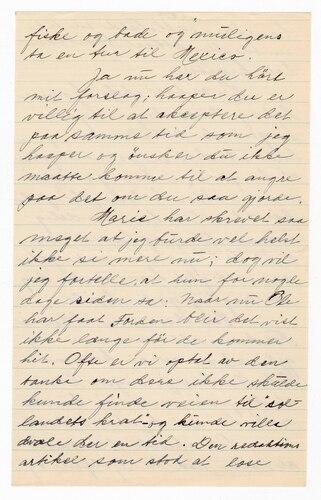 fiske og bade og muligens
ta en tur til Mexico.
Ja nu har du hört
mit forslag; haaper du er
villig til at akseptere det
paa samme tid som jeg
haaper og önsker du ikke
maatte komme til at angre
paa det om du saa gjorde.
Marie har skrevet saa
meget at jeg burde vel helst
ikke si mere nu; dog vil
jeg fortelle, at hun for nogle
dage siden sa: Naar nu Ole
har faat Forden blir det vist
ikke længe för de kommer
hit. Ofte er vi optat av den
tanke om dere ikke skulde
kunde finde veien til "sol-
landets krat" og kunde ville
dvæle der en tid. Den redaktions
artikel som stod at lese